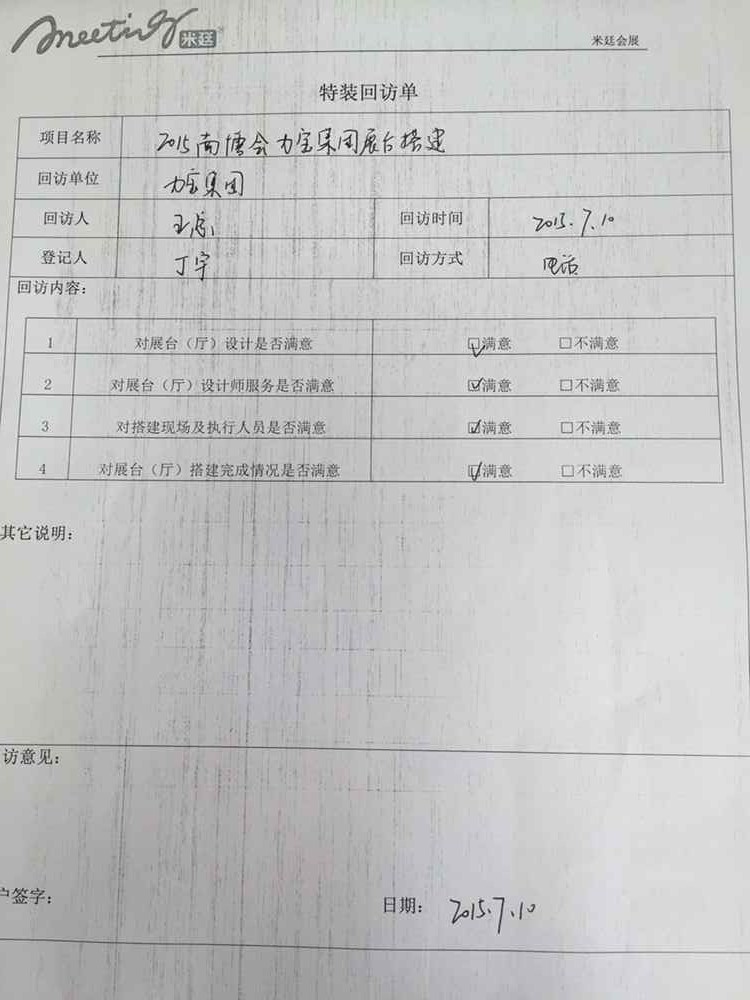 meeting 米廷
米廷会展
特装回访单
项目名称 2015南博会力宝集团展台搭建
回访单位 力宝集团
回访人 回访时间 2015.7.10
登记人 丁宇 回访方式 电话
回访内容：
1 对展台（厅）设计是否满意 ☑满意 □不满意
2 对展台（厅）设计师服务是否满意 ☑满意 □不满意
3 对搭建现场及执行人员是否满意 ☑满意 □不满意
4 对展台（厅）搭建完成情况是否满意 ☑满意 □不满意
其它说明：
访意见：
户签字： 日期： 2015.7.10